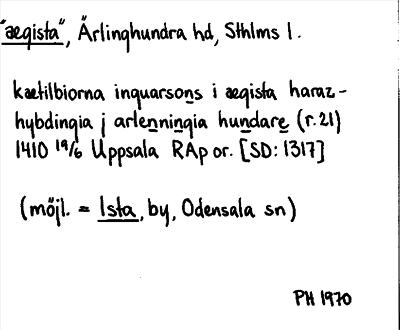 "ægista", Ärlinghundra hd, Sthlms l.
kætilbiorna inguarsons i ægista haraz-
hybdingia j arlenningia hundare (r.21)
1410 19/6 Uppsala RAp or. [SD: 1317]
(möjl. = Ista, by, Odensala sn)
PH 1970